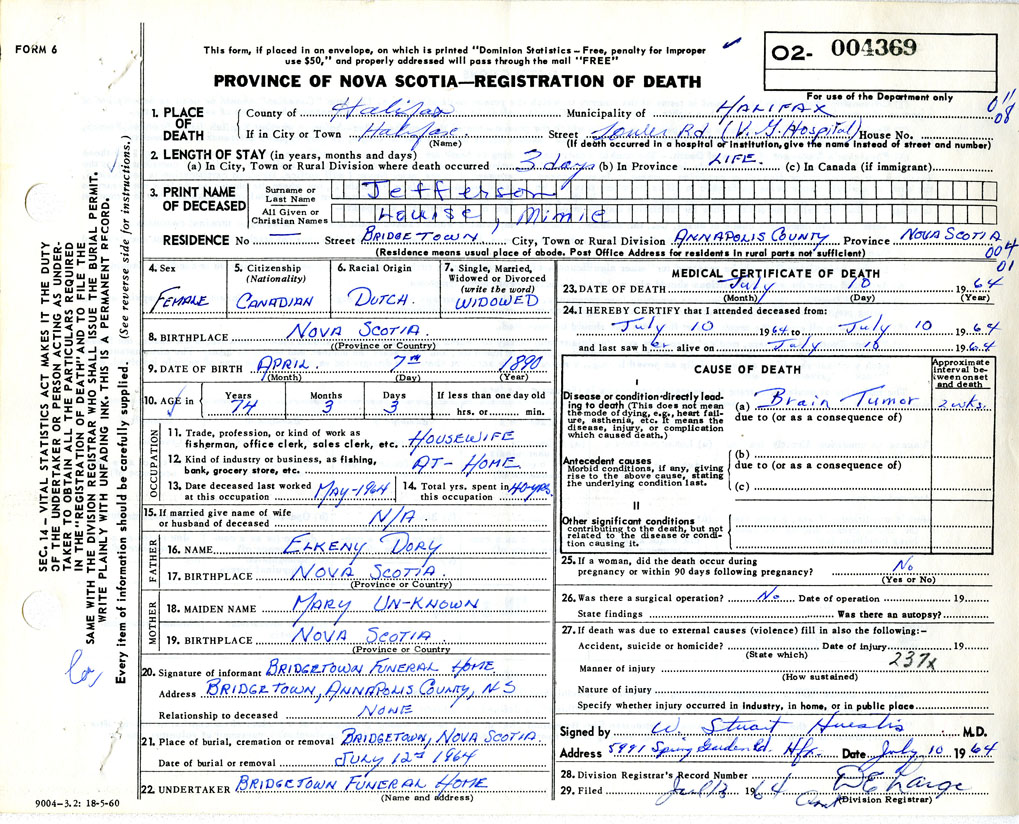 FORM 6
This form, if placed in an envelope, on which is printed "Dominion Statistics – Free, penalty for improper
use $50," and properly addressed will pass through the mail "FREE"
O2- 004369
For use of the Department only
PROVINCE OF NOVA SCOTIA—REGISTRATION OF DEATH
011
08
1. PLACE OF DEATH County of Halifax Municipality of HALIFAX
If in City or Town Halifax (Name) Street Tower Rd (V. G. Hospital) House No.
(If death occurred in a hospital or institution, give the name instead of street and number)
2. LENGTH OF STAY (in years, months and days)
(a) In City, Town or Rural Division where death occurred 3 days (b) In Province LIFE. (c) In Canada (if immigrant)
3. PRINT NAME OF DECEASED Surname or Last Name Jefferson
All Given or Christian Names Louise, Mimie
RESIDENCE No — Street BRIDGETOWN City, Town or Rural Division ANNAPOLIS COUNTY Province NOVA SCOTIA
(Residence means usual place of abode. Post Office Address for residents in rural parts not sufficient)
004
01
4. Sex FEMALE
5. Citizenship (Nationality) CANADIAN
6. Racial Origin DUTCH.
7. Single, Married, Widowed or Divorced (write the word) WIDOWED
8. BIRTHPLACE NOVA SCOTIA. (Province or Country)
9. DATE OF BIRTH APRIL (Month) 7TH (Day) 1890 (Year)
10. AGE in Years 74 Months 3 Days 3 If less than one day old hrs. or min.
OCCUPATION
11. Trade, profession, or kind of work as
fisherman, office clerk, sales clerk, etc. HOUSEWIFE
12. Kind of industry or business, as fishing,
bank, grocery store, etc. AT-HOME
13. Date deceased last worked at this occupation MAY-1964 14. Total yrs. spent in this occupation 40-yrs.
15. If married give name of wife
or husband of deceased N/A.
FATHER
16. NAME ELKENY DORY
17. BIRTHPLACE NOVA SCOTIA. (Province or Country)
MOTHER
18. MAIDEN NAME MARY UN-KNOWN
19. BIRTHPLACE NOVA SCOTIA (Province or Country)
20. Signature of informant BRIDGETOWN FUNERAL HOME
Address BRIDGETOWN, ANNAPOLIS COUNTY, N.S
Relationship to deceased NONE
21. Place of burial, cremation or removal BRIDGETOWN, NOVA SCOTIA.
Date of burial or removal JULY 12d 1964
22. UNDERTAKER BRIDGETOWN FUNERAL HOME
(Name and address)
9004-3.2: 18-5-60
MEDICAL CERTIFICATE OF DEATH
23. DATE OF DEATH July (Month) 10 (Day) 1964 (Year)
24. I HEREBY CERTIFY that I attended deceased from:
July 10 1964 to July 10 1964
and last saw her alive on July 10 1964
CAUSE OF DEATH
Approximate interval between onset and death
I
Disease or condition directly leading to death (This does not mean
the mode of dying, e.g., heart failure, asthenia, etc. It means the
disease, injury, or complication
which caused death.)
(a) Brain Tumor 2 wks.
due to (or as a consequence of)
Antecedent causes
Morbid conditions, if any, giving
rise to the above cause, stating
the underlying condition last.
(b)
due to (or as a consequence of)
(c)
II
Other significant conditions
contributing to the death, but not
related to the disease or condition causing it.
25. If a woman, did the death occur during
pregnancy or within 90 days following pregnancy? No (Yes or No)
26. Was there a surgical operation? No Date of operation 19
State findings Was there an autopsy?
27. If death was due to external causes (violence) fill in also the following:–
Accident, suicide or homicide? (State which) Date of injury 19
237x
Manner of injury (How sustained)
Nature of injury
Specify whether injury occurred in industry, in home, or in public place
Signed by W. Stuart Huestis M.D.
Address 5991 Spring Garden Rd. Hfx. Date July 10 1964
28. Division Registrar's Record Number
29. Filed Jul 13 1964 (Division Registrar)
SEC. 14 – VITAL STATISTICS ACT MAKES IT THE DUTY
OF THE UNDERTAKER OR PERSON ACTING AS UNDER-
TAKER TO OBTAIN ALL THE PARTICULARS REQUIRED
IN THE "REGISTRATION OF DEATH" AND TO FILE THE
SAME WITH THE DIVISION REGISTRAR WHO SHALL ISSUE THE BURIAL PERMIT.
WRITE PLAINLY WITH UNFADING INK. THIS IS A PERMANENT RECORD.
Every item of information should be carefully supplied. (See reverse side for instructions.)